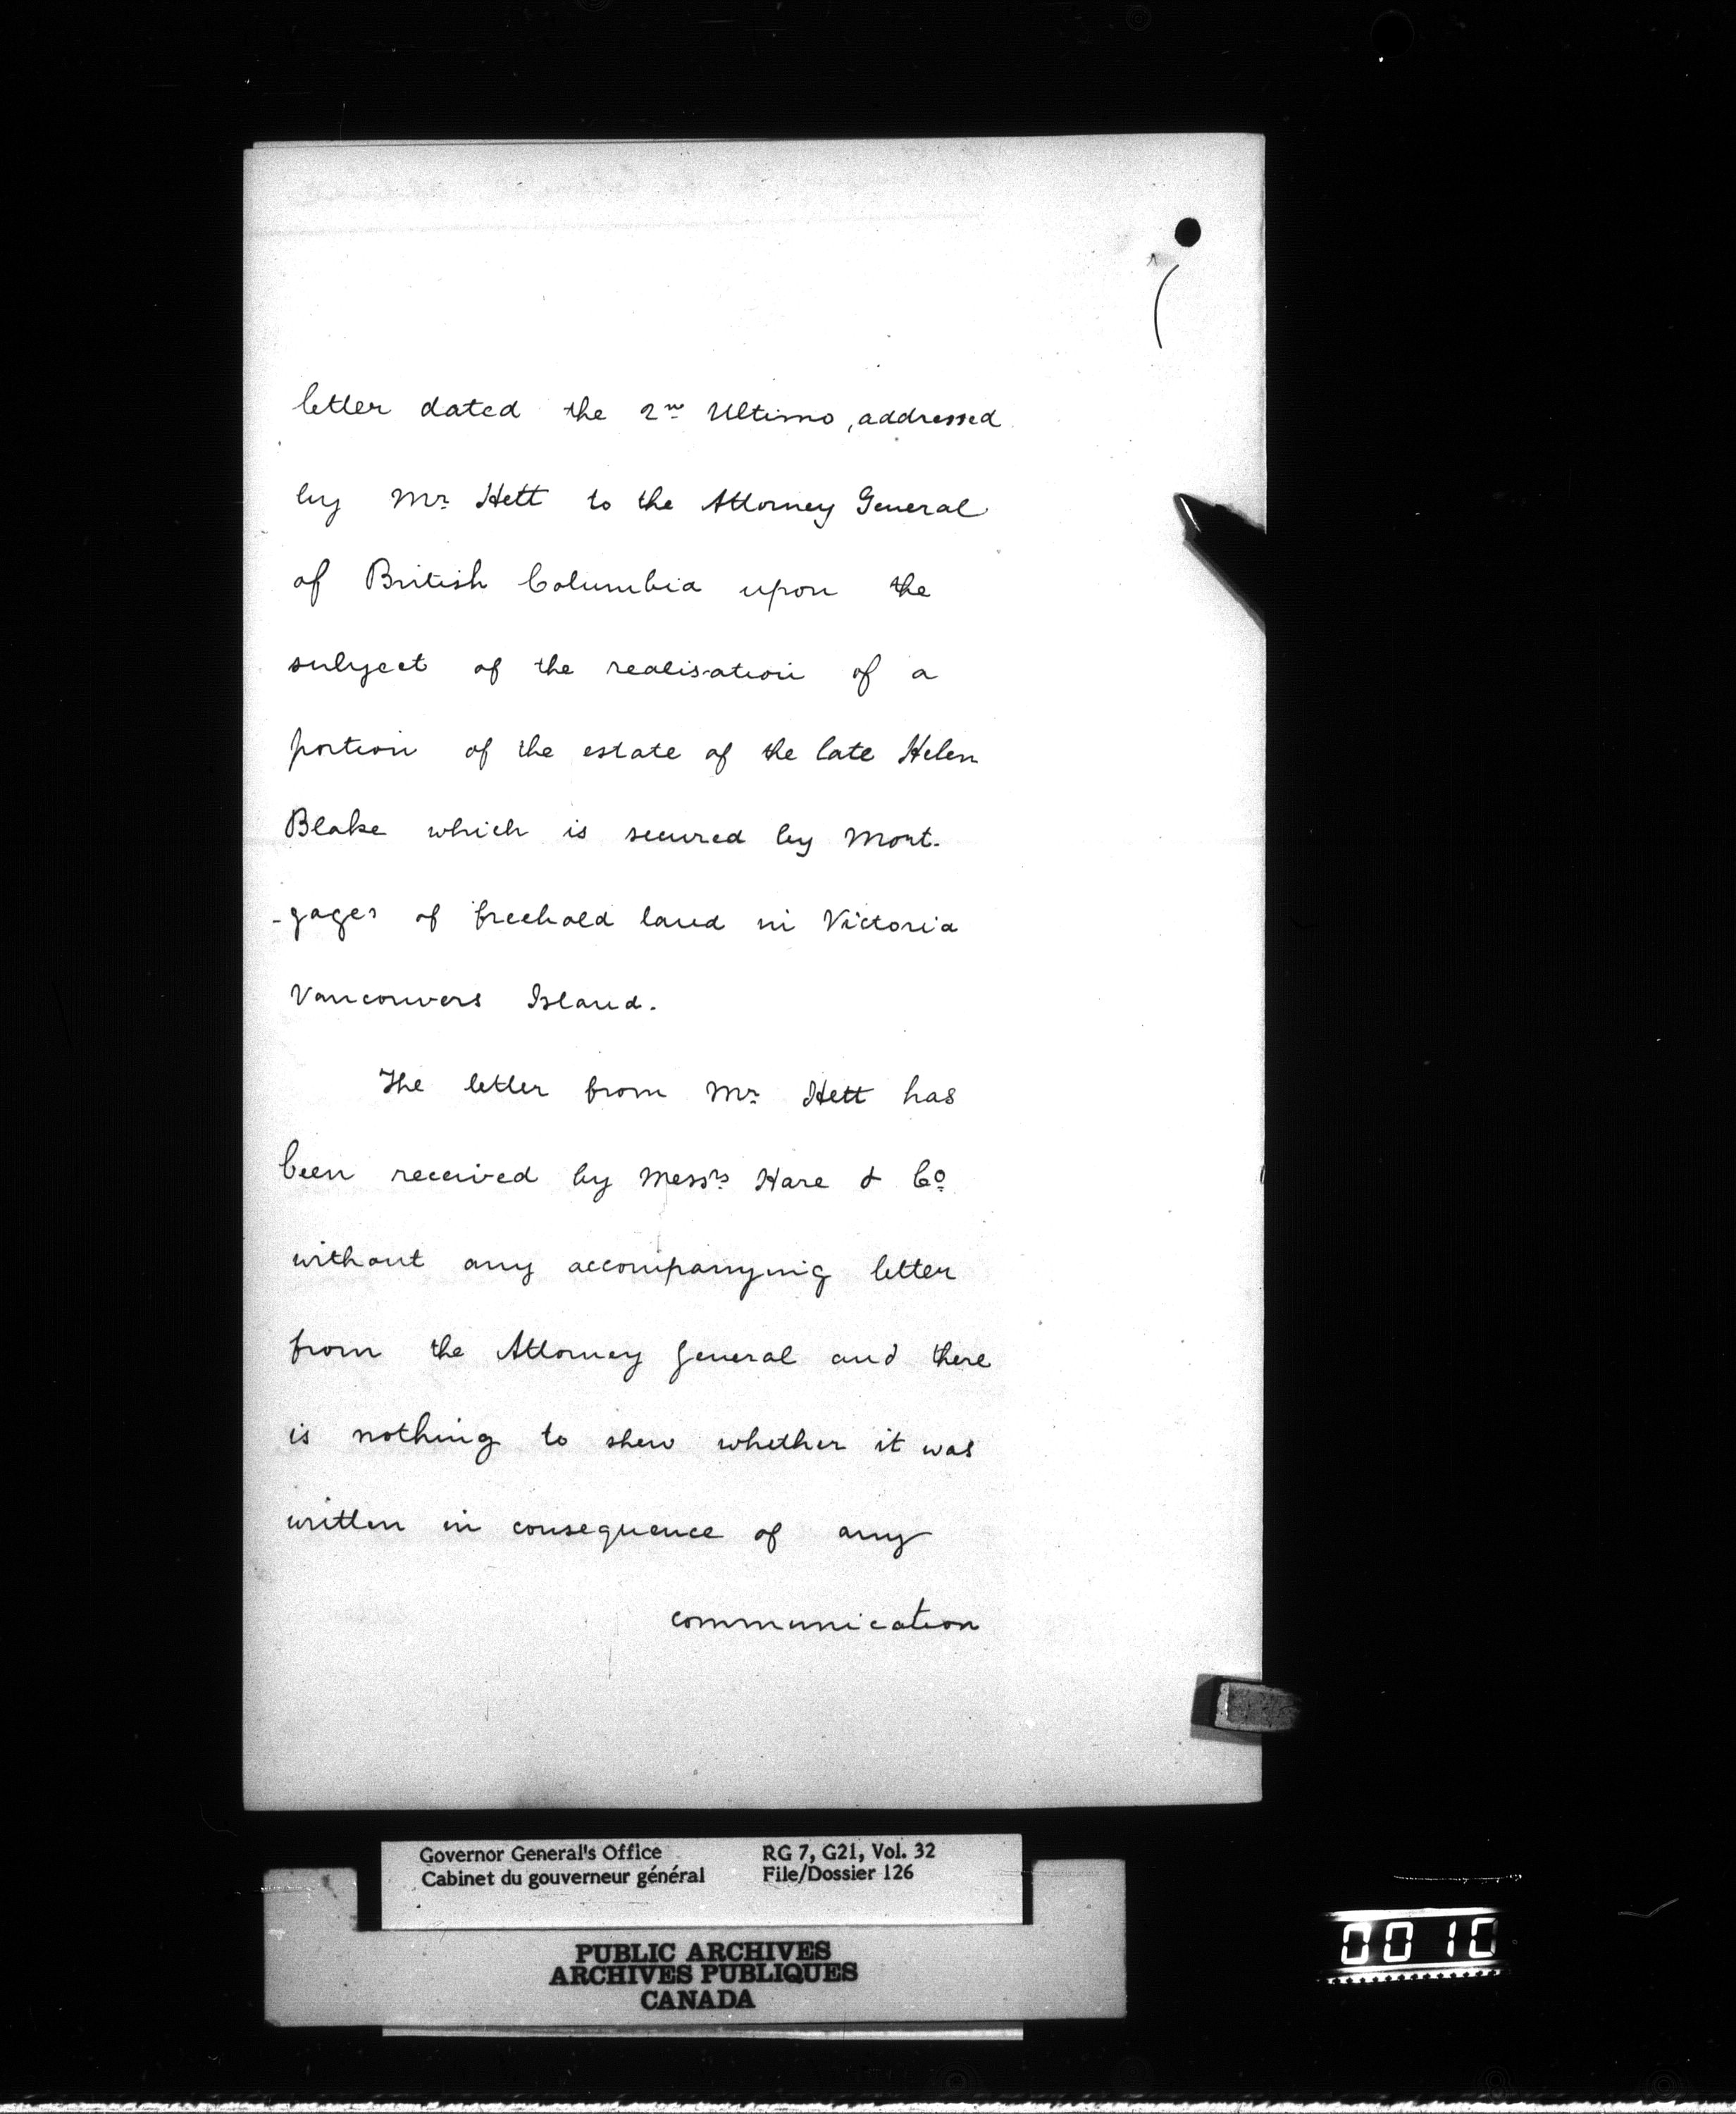 letter dated the 2nd Ultimo, addressed
by Mr. Hett to the Attorney General
of British Columbia upon the
subject of the realisation of a
portion of the estate of the late Helen
Blake which is secured by Mort-
-gages of freehold land in Victoria
Vancouvers Island.
The letter from Mr. Hett has
been received by Messrs Hare & Co.
without any accompanying letter
from the Attorney General and there
is nothing to shew whether it was
written in consequence of any
communication
Governor General's Office RG 7, G21, Vol. 32
Cabinet du gouverneur général File/Dossier 126
PUBLIC ARCHIVES
ARCHIVES PUBLIQUES
CANADA
0010